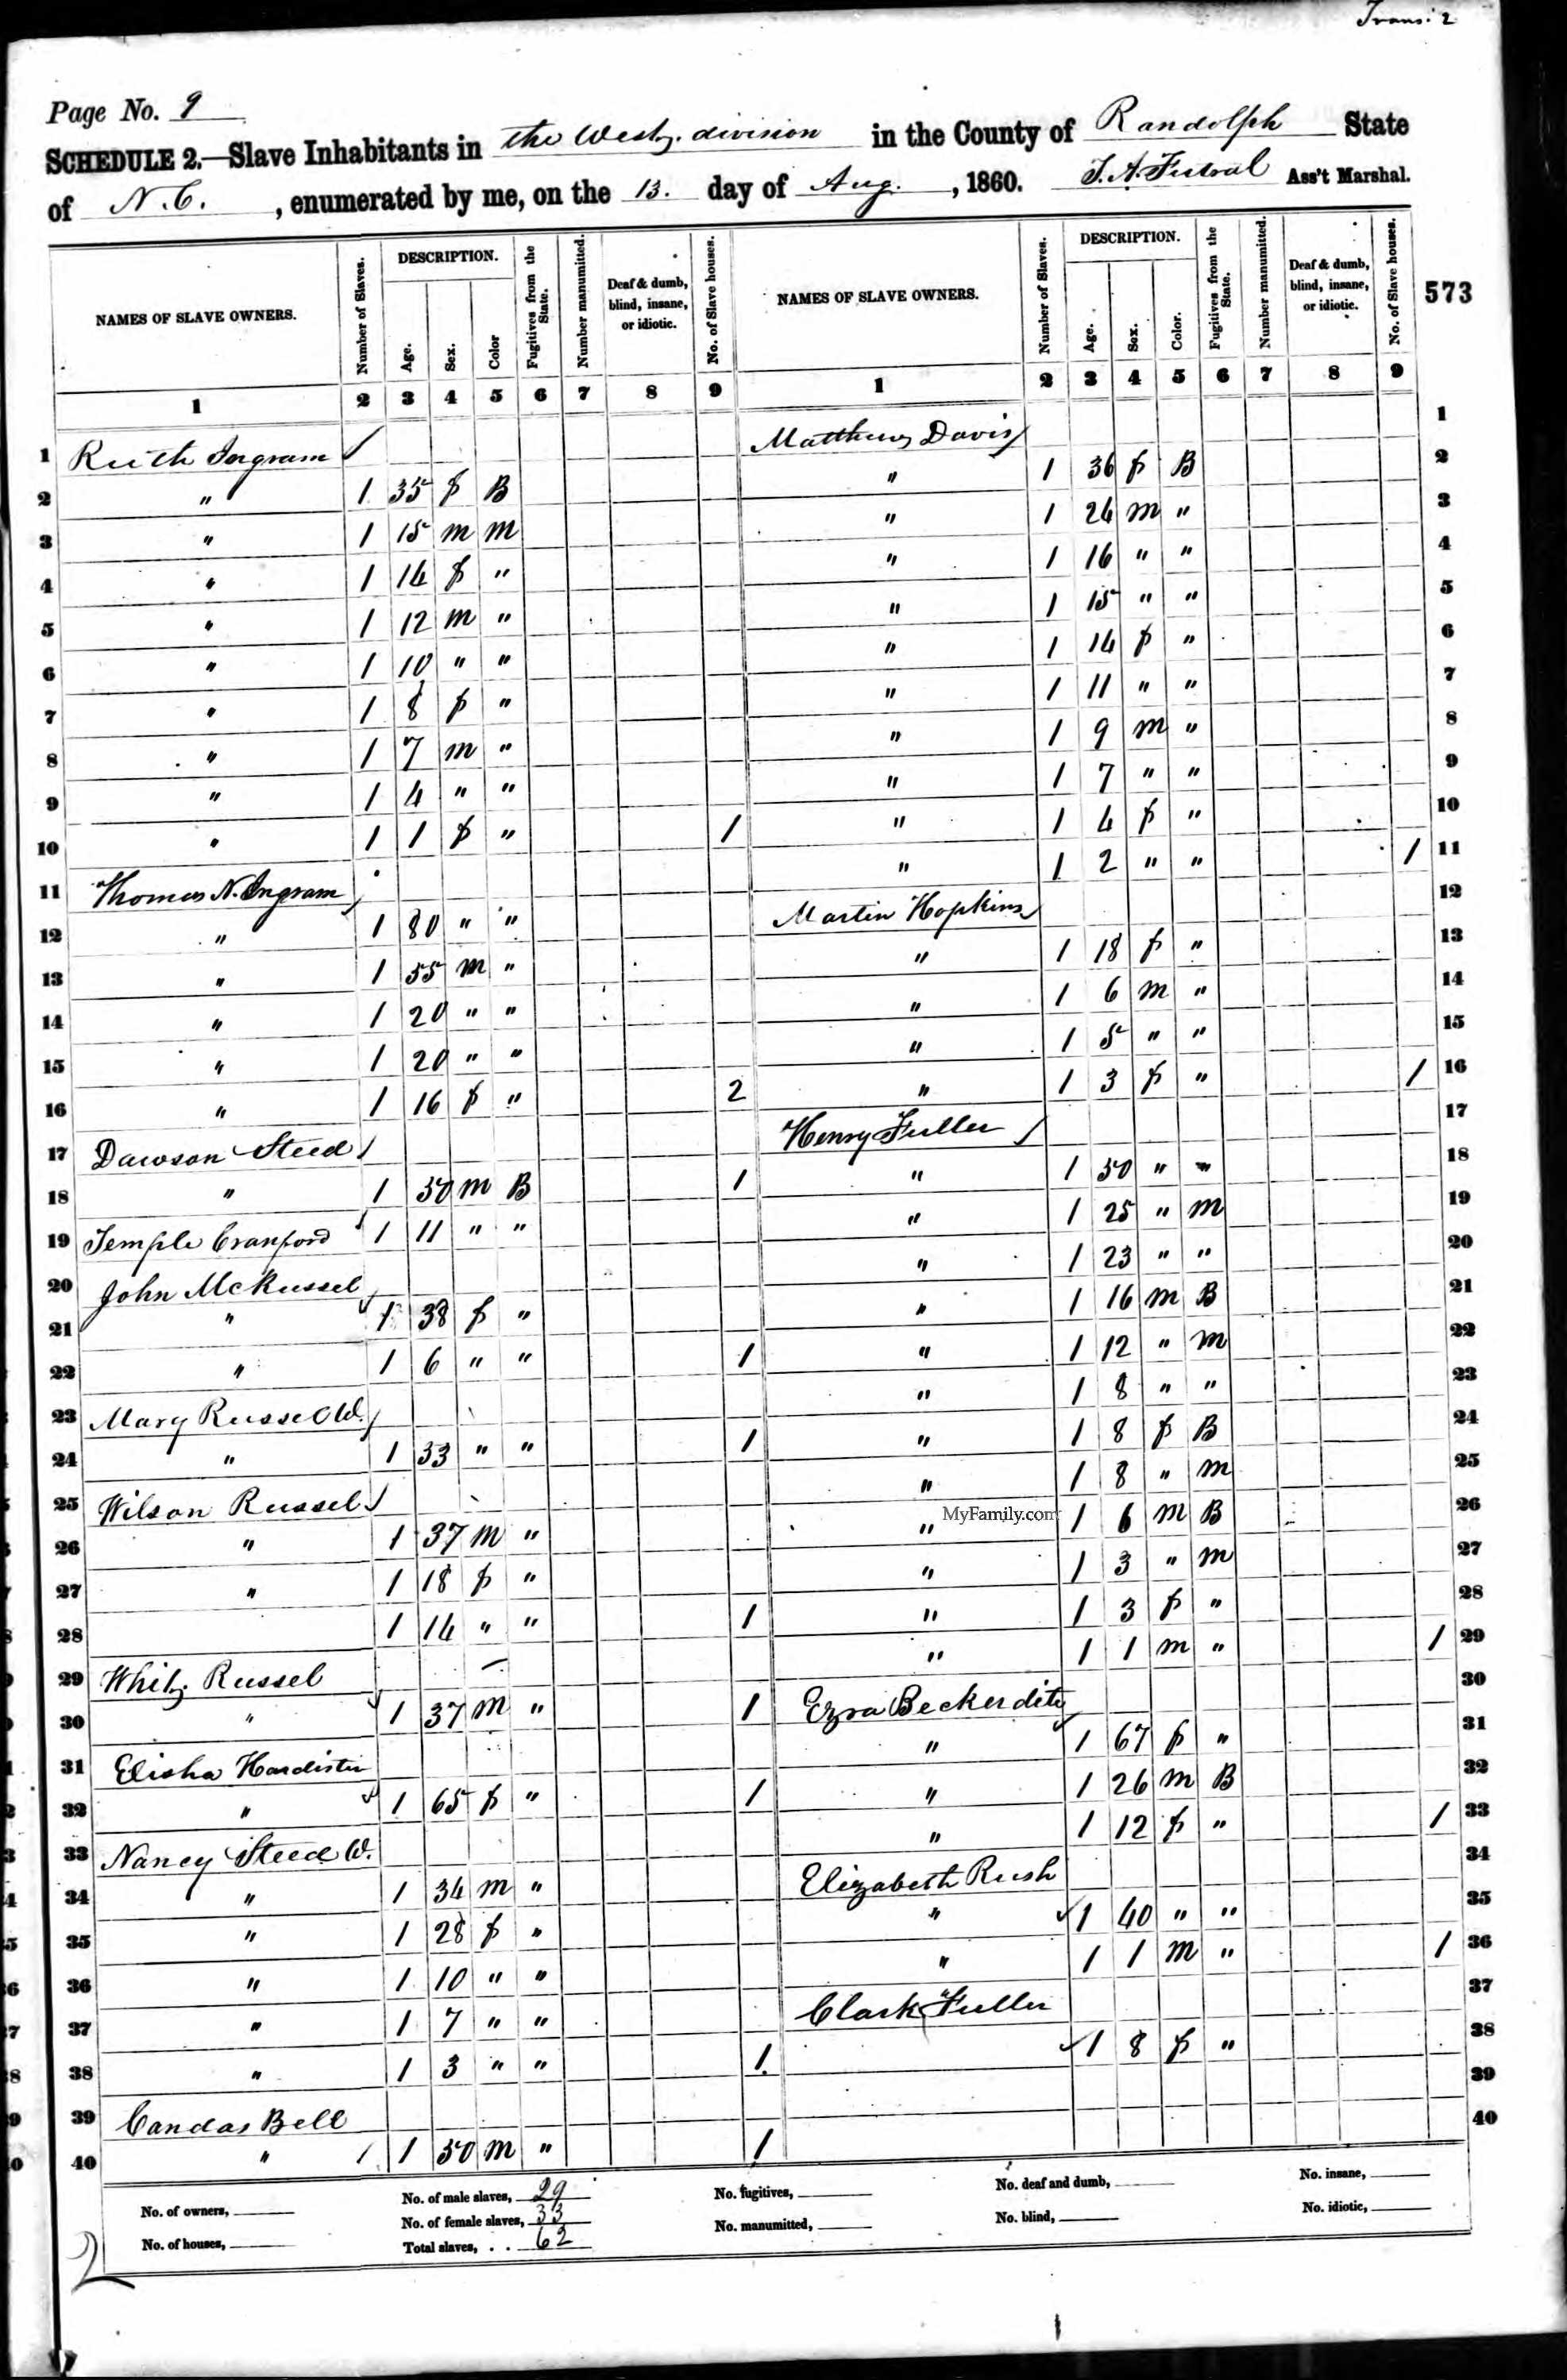 Trans: 2
Page No. 9
SCHEDULE 2.—Slave Inhabitants in the Westn. division in the County of Randolph State
of N.C., enumerated by me, on the 13. day of Aug., 1860. Ass't Marshal.
573
NAMES OF SLAVE OWNERS. Number of Slaves. DESCRIPTION. Age. Sex. Color Fugitives from the State. Number manumitted. Deaf & dumb, blind, insane, or idiotic. No. of Slave houses.
1 2 3 4 5 6 7 8 9
1 Ruth Ingram
2 " 1 35 f B
3 " 1 15 m m
4 " 1 14 f "
5 " 1 12 m "
6 " 1 10 " "
7 " 1 8 f "
8 " 1 7 m "
9 " 1 4 " "
10 " 1 1 f " 1
11 Thomas N. Ingram
12 " 1 80 " "
13 " 1 55 m "
14 " 1 20 " "
15 " 1 20 " "
16 " 1 16 f " 2
17 Dawson Steed
18 " 1 50 m B 1
19 Temple Cranford 1 11 " "
20 John McRussel
21 " 1 38 f "
22 " 1 6 " " 1
23 Mary Russel W.
24 " 1 33 " " 1
25 Wilson Russel
26 " 1 37 m "
27 " 1 18 f "
28 1 14 " " 1
29 Whit. Russel
30 " 1 37 m " 1
31 Elisha Hardister
32 " 1 65 f " 1
33 Nancy Steed W.
34 " 1 34 m "
35 " 1 28 f "
36 " 1 10 " "
37 " 1 7 " "
38 " 1 3 " " 1
39 Candas Bell
40 " 1 50 m " 1
NAMES OF SLAVE OWNERS. Number of Slaves. DESCRIPTION. Age. Sex. Color. Fugitives from the State. Number manumitted. Deaf & dumb, blind, insane, or idiotic. No. of Slave houses.
1 2 3 4 5 6 7 8 9
Matthew Davis 1
" 1 36 f B 2
" 1 24 m " 3
" 1 16 " " 4
" 1 15 " " 5
" 1 14 f " 6
" 1 11 " " 7
" 1 9 m " 8
" 1 7 " " 9
" 1 4 f " 10
" 1 2 " " 1 11
Martin Hopkins 12
" 1 18 f " 13
" 1 6 m " 14
" 1 5 " " 15
" 1 3 f " 1 16
Henry Fuller 17
" 1 50 " " 18
" 1 25 " m 19
" 1 23 " " 20
" 1 16 m B 21
" 1 12 " m 22
" 1 8 " " 23
" 1 8 f B 24
" 1 8 " m 25
" MyFamily.com 1 6 m B 26
" 1 3 " m 27
" 1 3 f " 28
" 1 1 m " 1 29
Ezra Beckerdite 30
" 1 67 f " 31
" 1 26 m B 32
" 1 12 f " 1 33
Elizabeth Rush 34
" 1 40 " " 35
" 1 1 m " 1 36
Clark Fuller 37
1 8 f " 38
39
40
No. of owners, No. of male slaves, 29 No. fugitives, No. deaf and dumb, No. insane,
No. of houses, No. of female slaves, 33 No. manumitted, No. blind, No. idiotic,
Total slaves, . . 62
2